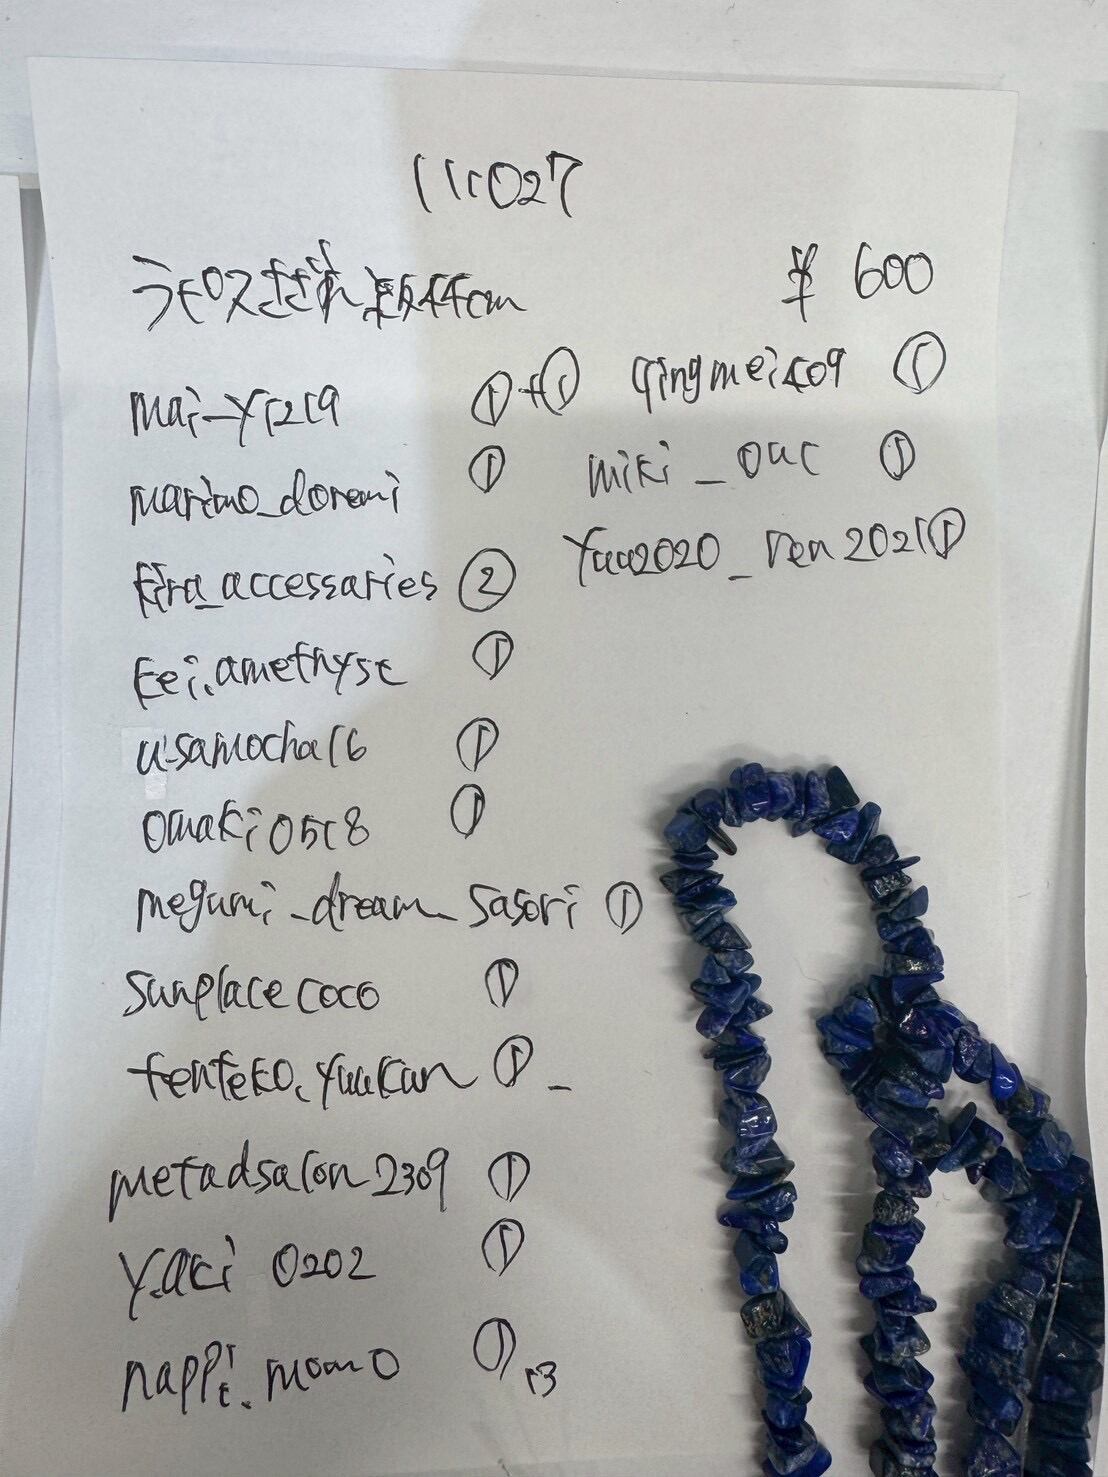 111027
ラピスさざれ 約44cm ¥600
mai_y1219 ①+①
marimo_doremi ①
kira_accessaries ②
kei.amethyst ①
usamocha16 ①
omaki0518 ①
megumi_dream_sasori ①
sunplacecoco ①
tenteko.yuukun ① _
metadsalon2309 ①
y.aki 0202 ①
nappi.momo ① 13
qingmei409 ①
miki_ouc ①
yuu2020_ren2021 ①